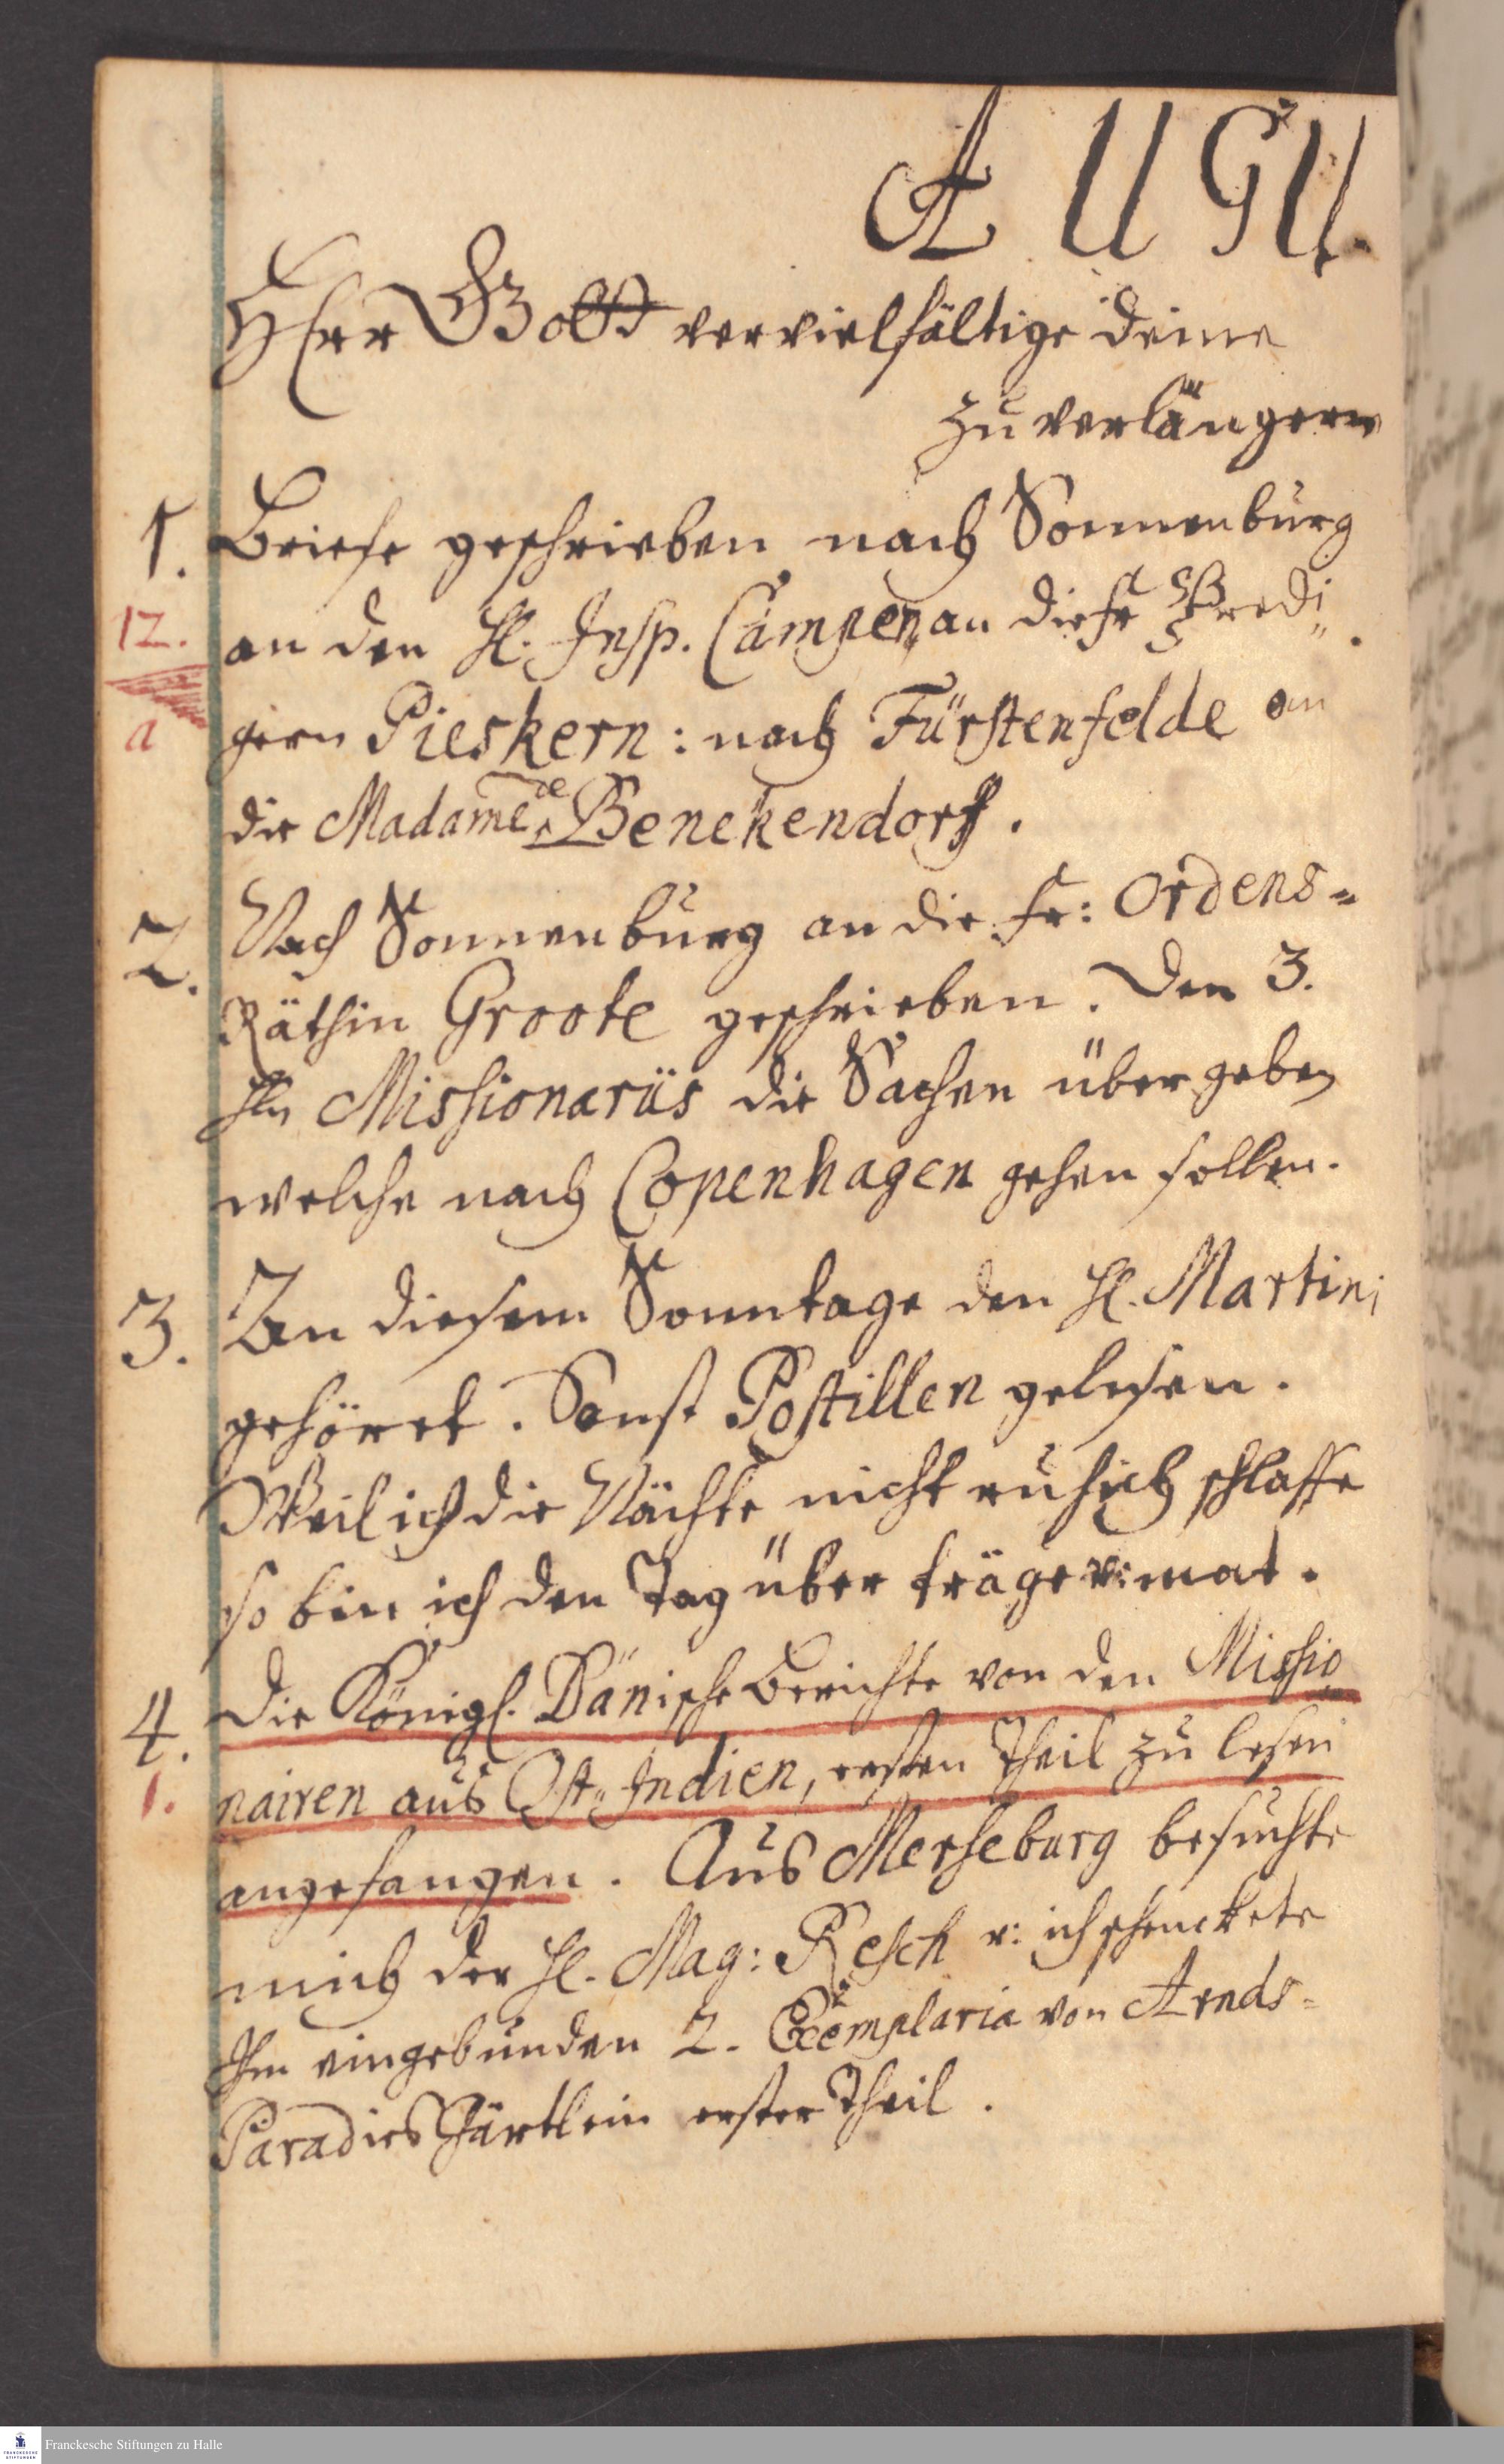 AUGU.
HErr GOtt vervielfältige deine
zu verlängern
1. Briefe geschrieben nach Sonnenburg
12. an den H. Insp. Campen, an diese Predi„
a gern Pieskern: nach Fürstenfelde an
die Madame de Benekendorf.
2. Nach Sonnenburg an die Fr: Ordens=
Räthin Groote geschrieben. Den 3.
Hn Missionariis die Sachen übergeben
welche nach Copenhagen gehen sollen.
3. An diesem Sonntage den H. Martini
gehöret. Sonst Postillen gelesen.
Weil ich die Nächte nicht ruhich schlaffe
so bin ich den Tag über träge v: mat.
4. Die Königl. Dänische Berichte von den Missio„
1. nairen aus Ost„Indien, ersten Theil zu lesen
angefangen. Aus Merseburg besuchte
mich der H. Mag: Resch v: ich schenckete
Ihm eingebunden 2. Exemplaria von Arnds=
Paradies Gärtlein erster Theil.
Franckesche Stiftungen zu Halle